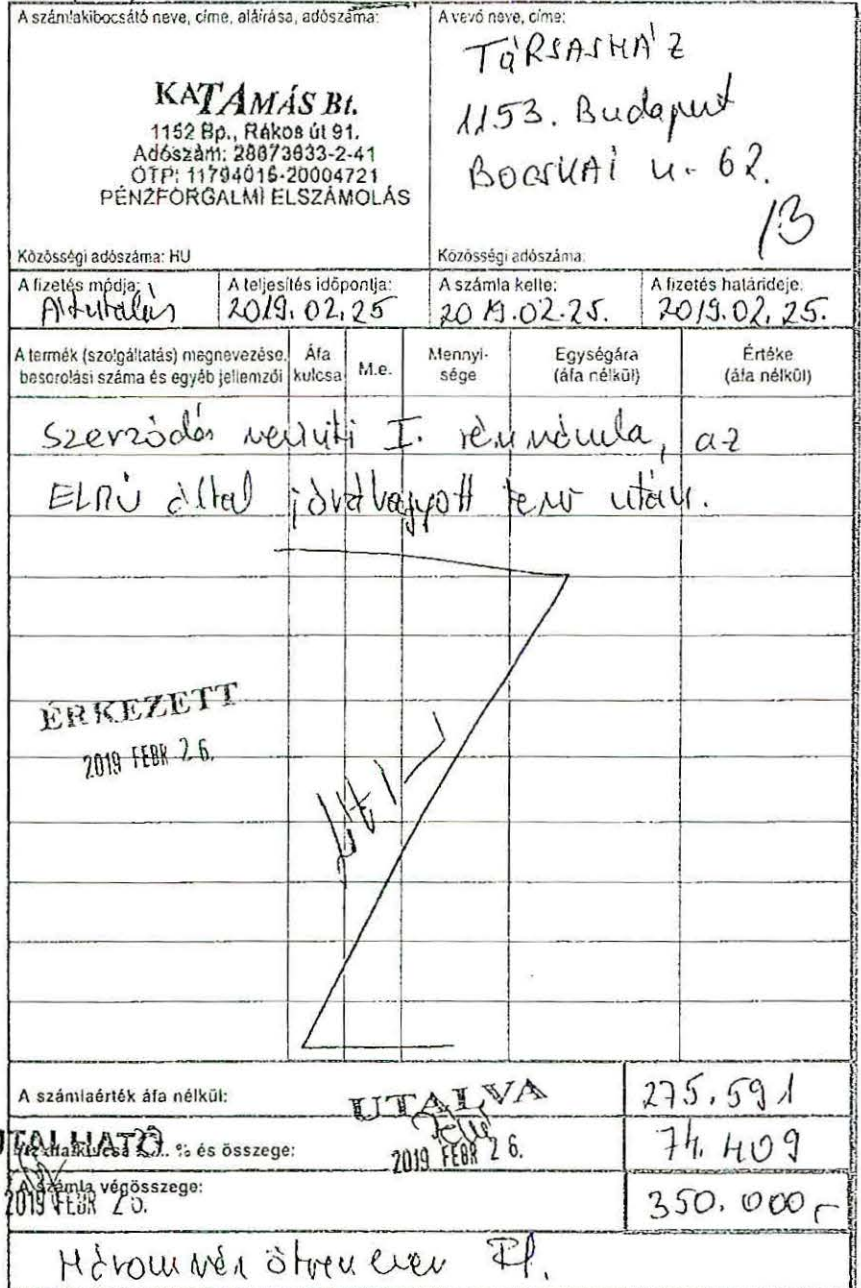 A számlakibocsátó neve, címe, aláírása, adószáma:
KATAMÁS Bt.
1152 Bp., Rákos út 91.
Adószám: 28673633-2-41
OTP: 11794016-20004721
PÉNZFORGALMI ELSZÁMOLÁS
Közösségi adószáma: HU
A vevő neve, címe:
TÁRSASHÁZ
1153. Budapest
BOCSKAI u. 62.
/B
Közösségi adószáma:
A fizetés módja:
Átutalás
A teljesítés időpontja:
2019.02.25
A számla kelte:
2019.02.25.
A fizetés határideje:
2019.02.25.
A termék (szolgáltatás) megnevezése, besorolási száma és egyéb jellemzői
Áfa kulcsa
M.e.
Mennyisége
Egységára (áfa nélkül)
Értéke (áfa nélkül)
Szerződés szerinti I. részszámla, az
ELMŰ által jóváhagyott terv után.
ÉRKEZETT
2019 FEBR 26.
A számlaérték áfa nélkül:
275.591
UTALVA
2019 FEBR 26.
UTALHATÓ
% és összege:
74.409
2019 FEBR 26.
A számla végösszege:
350.000,-
Háromszáz ötven ezer Ft.